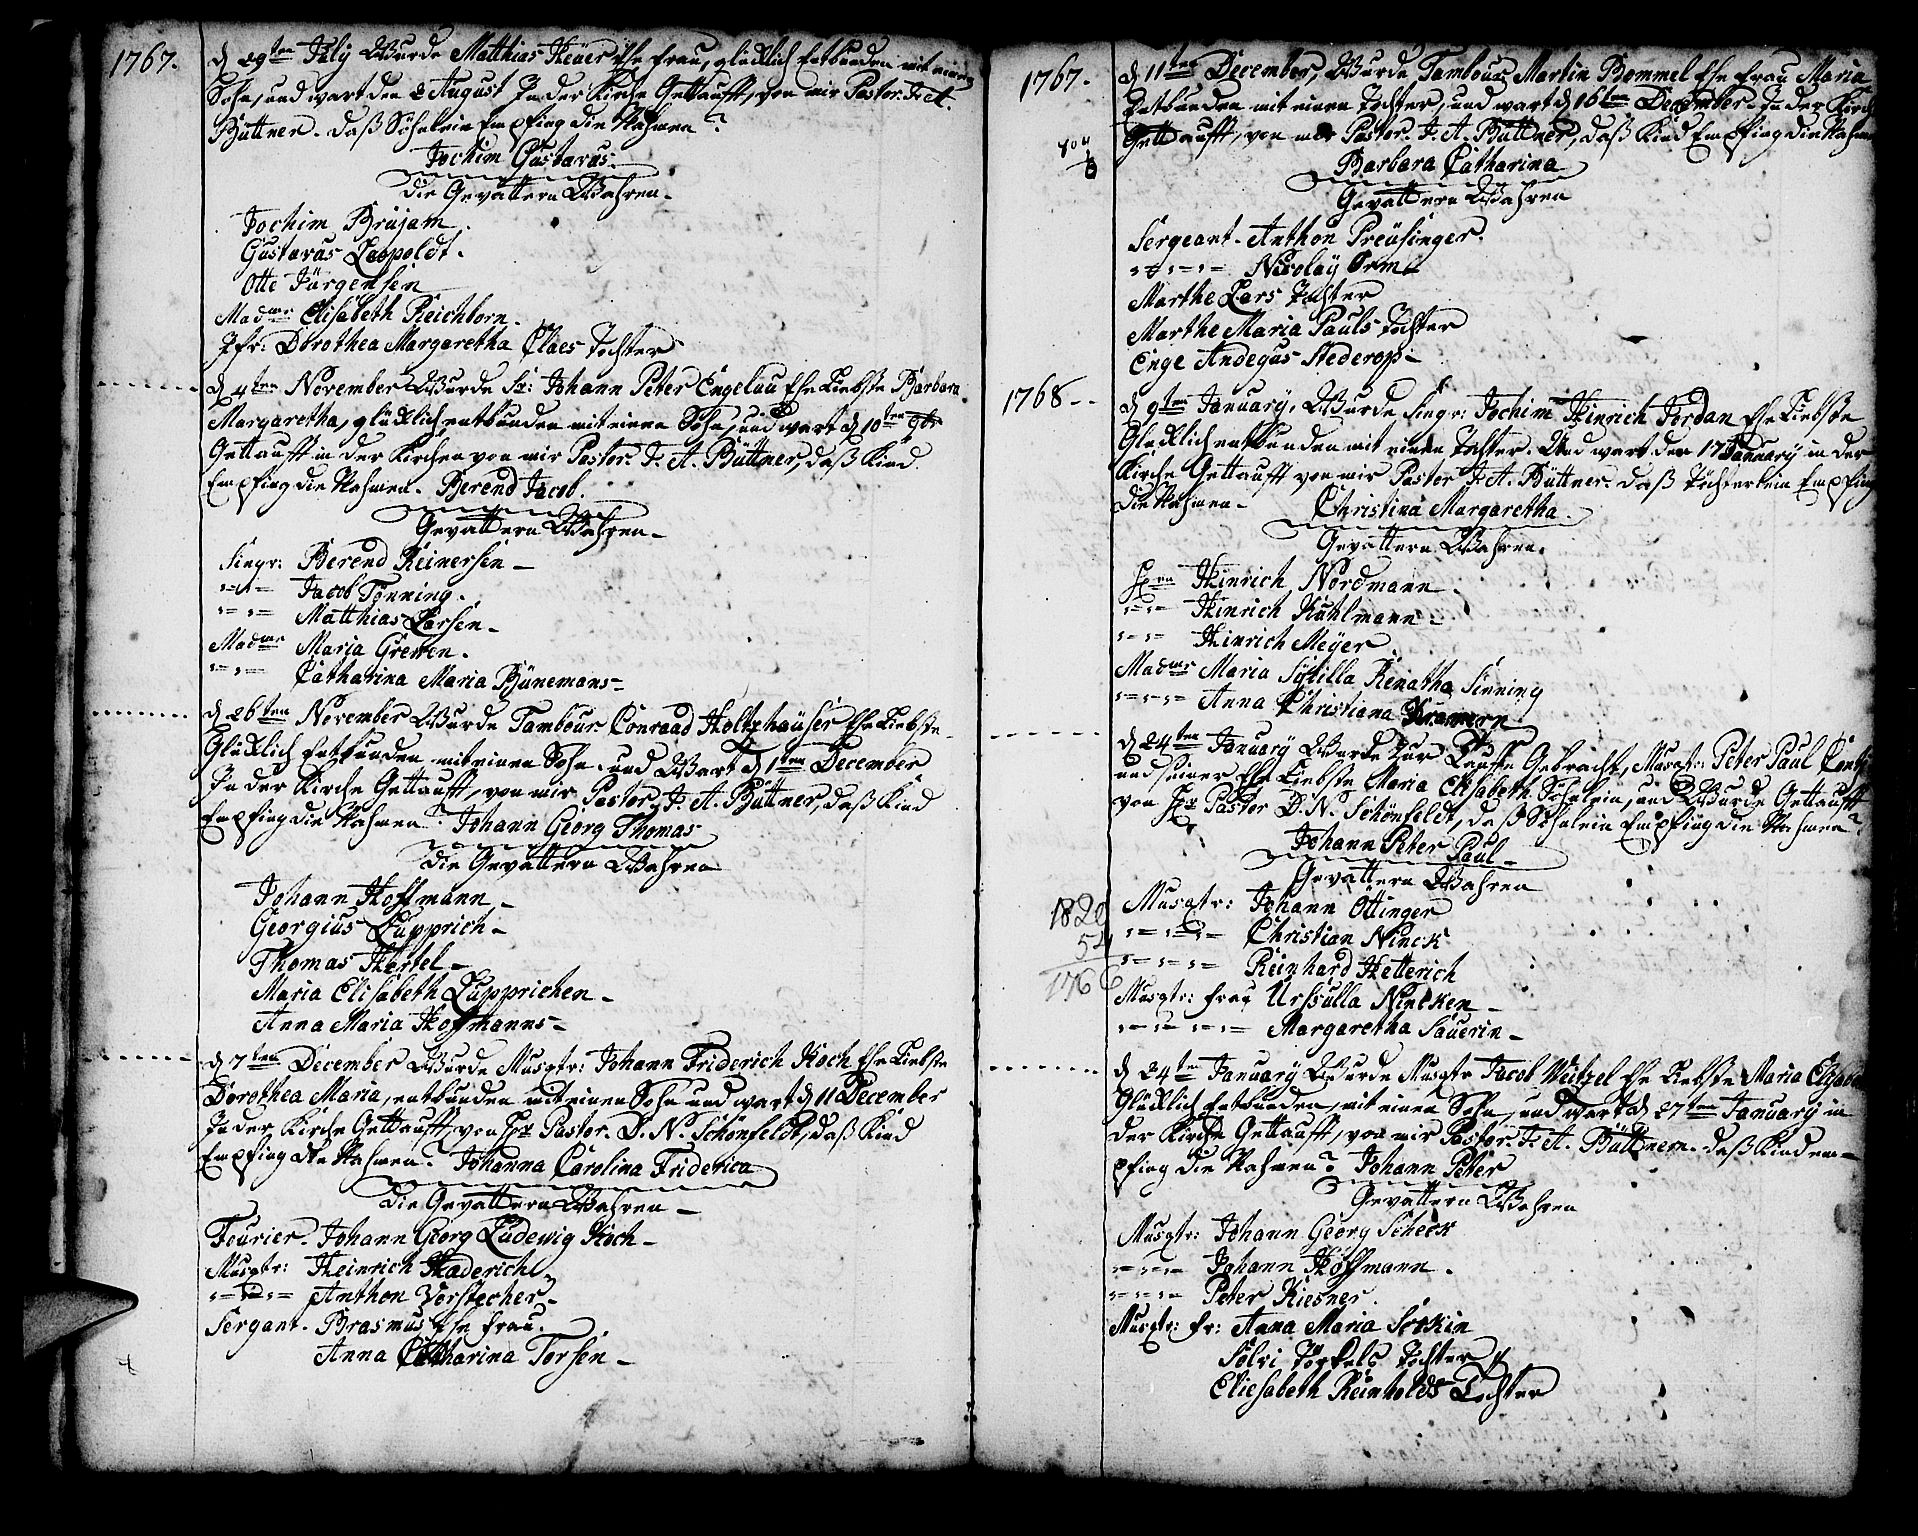 1767.
d 29ten July Wurde Matthias Heüer Ehe frau, glücklich Entbunden mit einem
Sohn, und wart den 2 August In der Kirche Gettaufft, von mir Pastor. F. A.
Büttner. daß Söhnlein Empfing die Nahmen
Jochim Gustavus.
die Gevattern Wahren.
Jochim Brüjam.
Gustavus Leopoldt.
Otte Jürgensen
Madme Elisabeth Reichborn.
Jfr: Dorothea Margaretha Claes Tochter
d 4ten November Wurde Sr: Johann Peter Engelau Ehe Liebste Barbara
Margaretha, glücklich entbunden mit einen Sohn, und wart d 10ten
Gettaufft in der Kirchen von mir Pastor. F. A. Büttner, daß Kind
Empfing die Nahmen. Berend Jacob.
Gevattern Wahren
Singr: Berend Reinersen
Jacob Tönning.
Matthias Larsen
Madme Maria Greven.
Catharina Maria Bünemans
d 26ten November Wurde Tambour Conraad Holtzhaüser Ehe Liebste
Glücklich Entbunden mit einen Sohn, und Wart d 1ten December
In der Kirche Gettaufft, von mir Pastor, F. A. Büttner, daß Kind
Empfing die Nahmen Johann Georg Thomas
die Gevattern Wahren
Johann Hoffmann
Georgius Lupprich
Thomas Hertel
Maria Elisabeth Lupprichen
Anna Maria Hoffmanns
d 7ten December Wurde Musqtr: Johann Friderich Koch Ehe Liebste
Dorothea Maria, entbunden mit einen Sohn und wart d 11 December
In der Kirche Gettaufft, von Hr Pastor. D. N. Schönfeldt, daß Kind
Empfing die Nahmen. Johanna Carolina Friderica
die Gevattern Wahren
Fourier. Johann Georg Ludewig Koch
Musqtr: Heinrich Haderich
Anthon Vorstecher
Sergant. Brasmus Ehe frau.
Anna Catharina Torsen
1767.
d 11ten December, Wurde Tambour Martin Bommel Ehe frau Maria
Entbunden mit einen Tochter, und wart d 16ten December In der Kirch
Gettaufft, von mir Pastor. F. A. Büttner, daß Kind Empfing die Nahmen
Barbara Catharina
Gevattern Wahren
Sergeant. Anthon Preüsinger.
Nicolaÿ Orm
Marthe Lars Tochter
Marthe Maria Pauls Tochter
Enge Andegas Nederop
1768
d 9ten January, Wurde Singr: Jochim Hinrich Jordan Ehe Liebste
Glücklich entbunden mit einen Tochter. Und wart den 17 January in der
Kirche Gettaufft von mir Pastor F. A. Büttner. daß Töchterlein Empfing
die Nahmen. Christina Margaretha.
Gevattern Wahren.
Hinrich Nordmann
Hinrich Kuhlmann
Hinrich Meÿer
Madme Maria Sybilla Renatha Sinning
Anna Christiana Kramern
d 24ten January Wurde Zur Tauffe Gebracht, Musqtr: Peter Paul
und seiner Ehe Liebste Maria Elisabeth Söhnlein, und Wurde Gettaufft
von Hr Pastor D. N. Schönfeldt, daß Söhnlein Empfing die Nahmen
Johann Peter Paul
Gevattern Wahren
1820
54
1766
Musqtr: Johann Öttinger
Christian Ninck
Reinhard Hetterich
Musqtr: frau Urssulla Nincken
Margaretha Sauerin
d 24ten January Wurde Musqtr Jacob Weitzel Ehe Liebste Maria Elisabe
Glücklich Entbunden, mit einen Sohn, und wart d 27ten January in
der Kirche Gettaufft, von mir Pastor. F. A. Büttnern. daß Kind em
pfing die Nahmen Johann Peter
Gevattern Wahren
Musqtr: Johann Georg Scheck
Johann Hoffmann.
Peter Kiesner.
Musqtr: fr: Anna Maria Sockin
Sölvi Torkels Tochter
Eliesabeth Reinholds Tochter